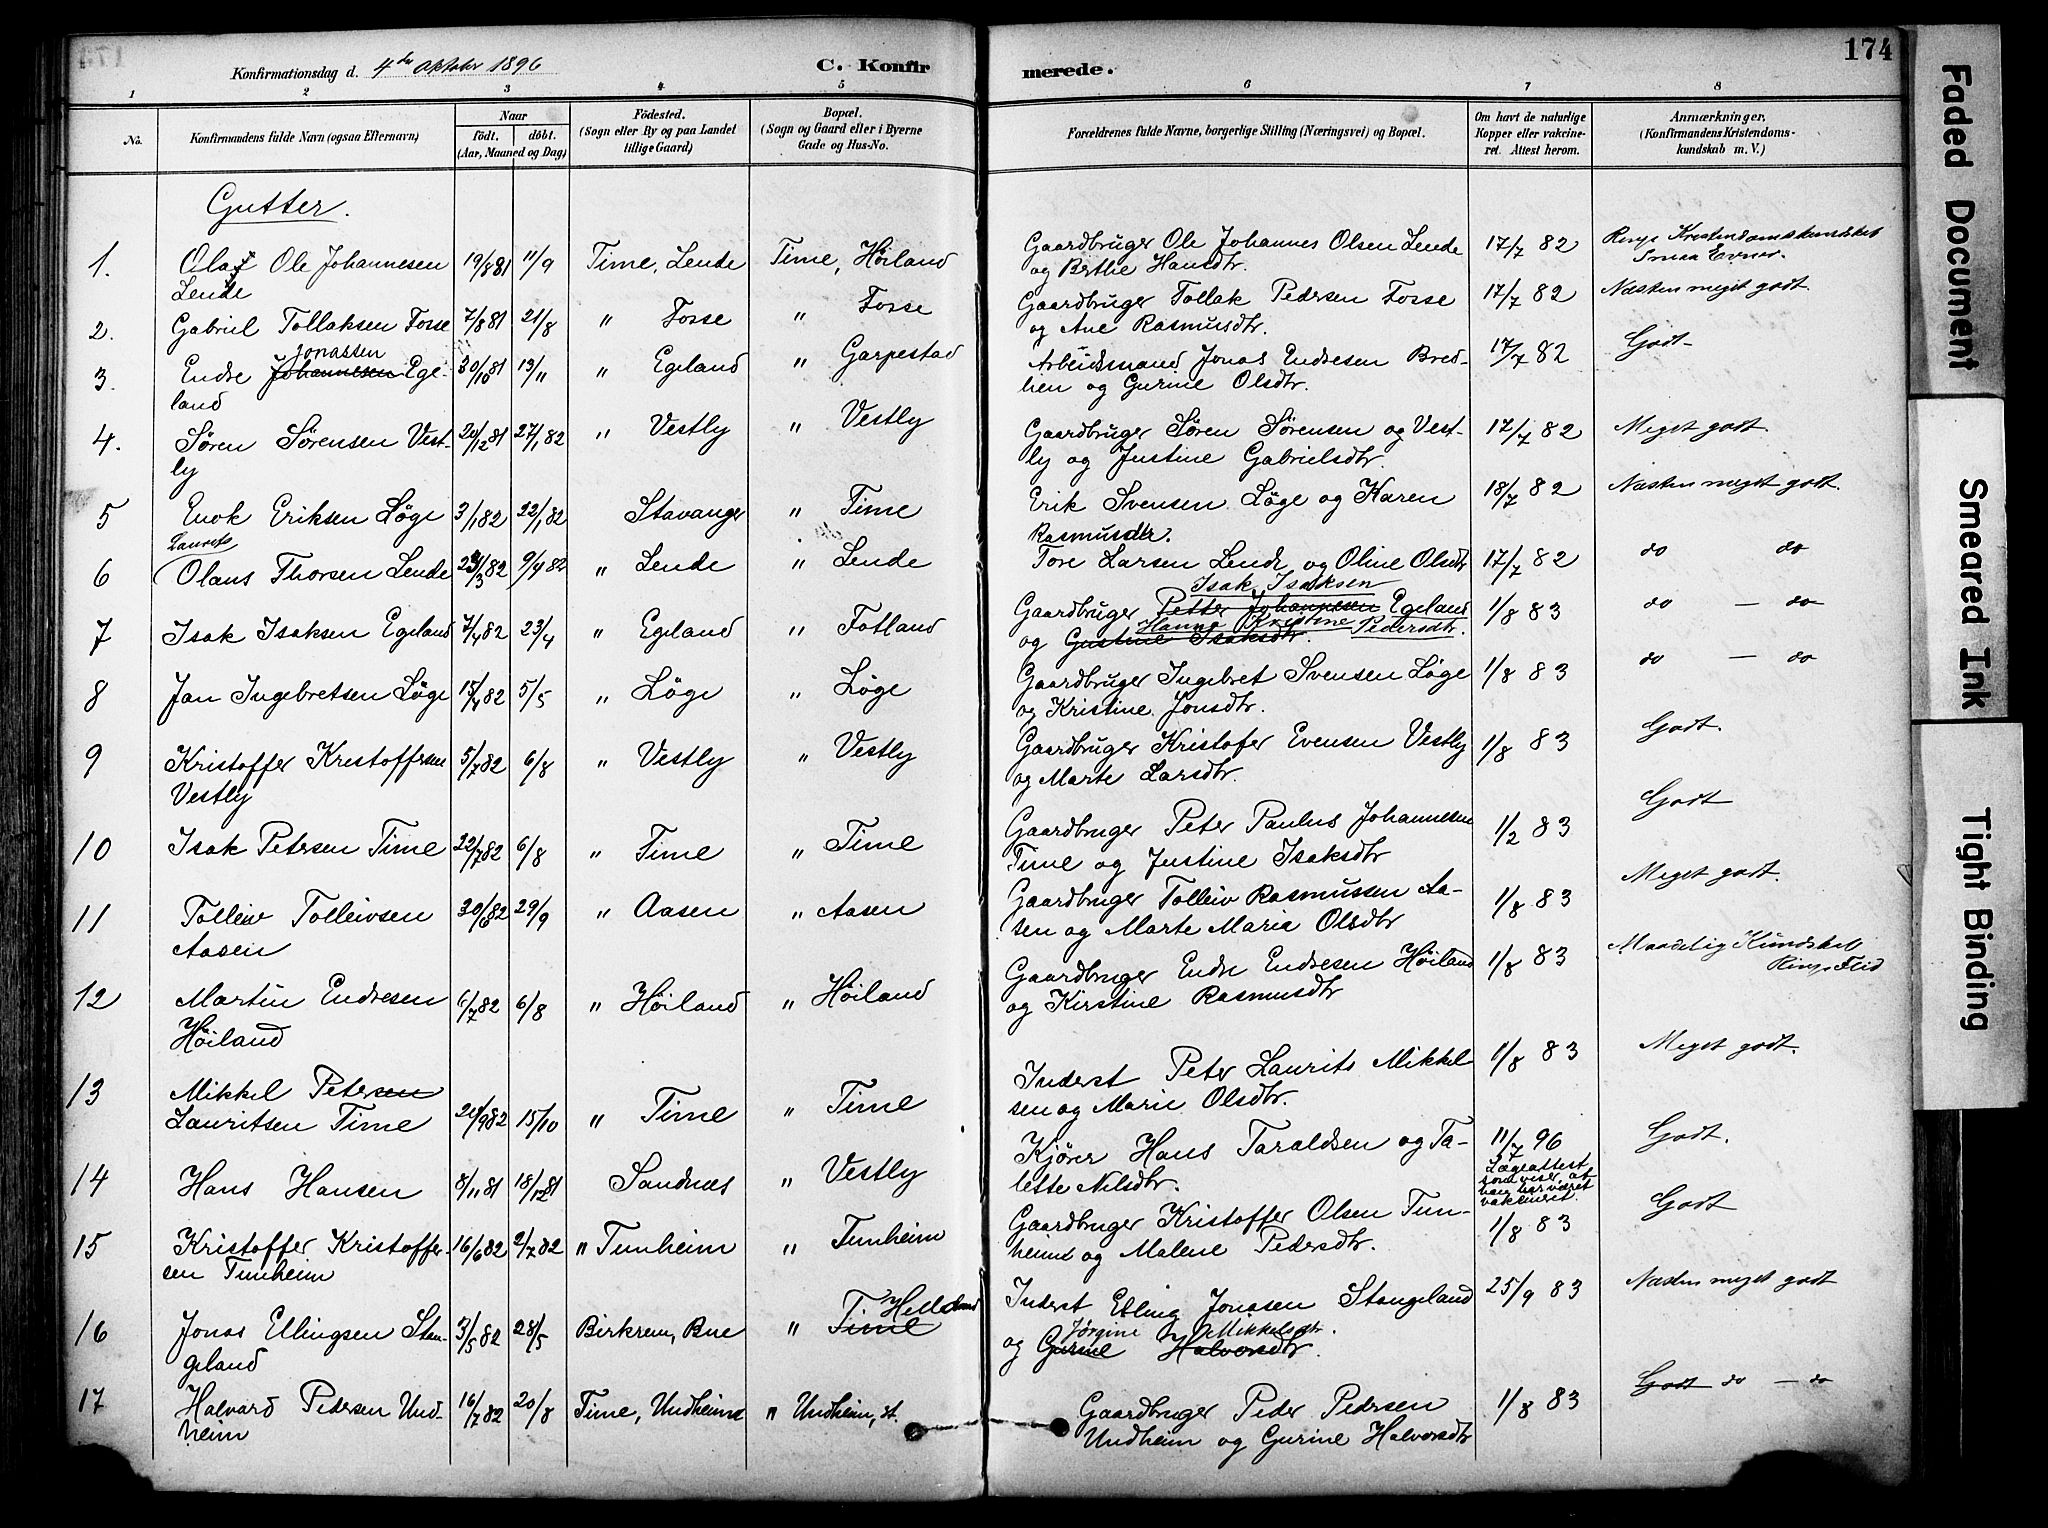 174
Konfirmationsdag d. 4de Oktober 1896 C. Konfirmerede.
1 2 3 4 5 6 7 8
No. Konfirmandens fulde Navn (ogsaa Efternavn) Naar født. døbt. (Aar, Maaned og Dag) Fødested. (Sogn eller By og paa Landet tillige Gaard) Bopæl. (Sogn og Gaard eller i Byerne Gade og Hus-No. Forældrenes fulde Navne, borgerlige Stilling (Næringsvei) og Bopæl. Om havt de naturlige Kopper eller vaccineret. Attest herom. Anmærkninger. (Konfirmandens Kristendomskundskab m. V.)
Gutter.
1. Olaf Ole Johannesen 19/8 81 11/9 Time, Lende Time, Høiland Gaardbruger Ole Johannes Olsen Lende 17/7 82 Ringe Kristendomskundskab
Lende og Berthe Hansdtr. Smaa Evner.
2. Gabriel Tollaksen Fosse 7/8 81 21/8 " Fosse " Fosse Gaardbruger Tollak Pedersen Fosse 17/7 82 Næsten meget godt.
og Ane Rasmusdtr.
Jonassen
3. Endre Johannesen Ege- 30/10 81 13/11 " Egeland " Garpestad Arbeidsmand Jonas Endresen Bred- 17/7 82 Godt
land hen og Gurine Olsdtr.
4. Søren Sørensen Vest- 20/12 81 27/1 82 " Vestly " Vestly Gaardbruger Søren Sørensen og Vest- 17/7 82 Meget godt.
ly ly og Justine Gabrielsdtr.
5 Enok Eriksen Løge 3/1 82 22/1 82 Stavanger " Time Erik Svensen Løge og Karen 18/7 82 Næsten meget godt.
Laurets Rasmusdtr.
6 Olaus Thorsen Lende 23/3 82 9/4 82 " Lende " Lende Tore Larsen Lende og Oline Olsdtr 17/7 82 do do
Isak Isaksen
7 Isak Isaksen Egeland 7/4 82 23/4 " Egeland " Fotland Gaardbruger Petter Johannesen Egeland 1/8 83 do — do
Hanna Kristine Pedersdtr.
og Gustine Isaksdtr.
8 Jan Ingebretsen Løge 17/4 82 5/5 " Løge " Løge Gaardbruger Ingebret Svensen Løge 1/8 83 do — do
og Kristine Jonsdtr.
9 Kristoffer Kristoffersen 5/7 82 6/8 " Vestly " Vestly Gaardbruger Kristofer Evensen Vestly 1/8 83 Godt.
Vestly og Marte Larsdtr.
10 Isak Petersen Time 22/7 82 6/8 " Time " Time Gaardbruger Peter Paulus Johannesen 1/2 83 Godt
Time og Justine Isaksdtr
11 Tolleiv Tolleivsen 30/8 82 29/9 " Aasen " Aasen Gaardbruger Tolleiv Rasmussen Aa- 1/8 83 Meget godt.
Aasen sen og Marte Maria Olsdtr
12 Martin Endresen 6/7 82 6/8 " Høiland " Høiland Gaardbruger Endre Endresen Høiland 1/8 83 Maadelig Kundskab
Høiland og Kirstine Rasmusdtr Ringe Flid
13 Mikkel Petersen Inderst Peter Laurits Mikkel- 1/8 83 Meget godt.
Lauritsen Time 24/9 82 15/10 " Time " Time sen og Marie Olsdtr.
14 Hans Hansen 8/11 81 18/12 81 Sandnes " Vestly Kjører Hans Taraldsen og Ta- 11/7 96 Godt.
lette Nilsdtr. Lægeattest
som viser, at
han har været
vakcineret.
15 Kristoffer Kristoffer- 16/6 82 2/7 82 " Tunheim " Tunheim Gaardbruger Kristoffer Olsen Tun- 1/8 83 Godt
sen Tunheim heim og Malene Pedersdtr.
Helland
16 Jonas Ellingsen Stan- 3/5 82 28/5 Birkrem, Bue " Time Inderst Elling Jonasen Stangeland 25/9 83 Næsten meget godt
Jørgine Mikkelsdtr.
geland og Gurine Halvorsdtr.
17 Halvard Pedersen Und- 16/7 82 20/8 Time, Undheim " Undheim, st. Gaardbruger Peder Pedersen 1/8 83 Godt do — do
heim Undheim og Gurine Halvorsdtr
Faded Document
Smeared Ink
Tight Binding